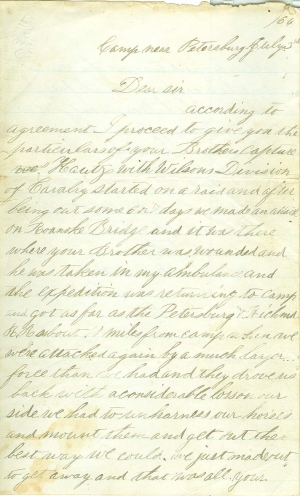 Camp near Petersburg July
Dear sir
according to
agreement I proceed to give you the
particulars of your Brothers Capture
Kautz with Wilsons Division
of Cavalry started on a raid and after
being out some 6 or 7 days we made an attack
on Roanoke Bridge and it was there
where your Brother was wounded and
he was taken in my ambulance and
the expedition was returning to camp
and got as far as the Petersburg &
R. R. about miles from camp where we
were attacked again by a much larger
force than we had and they drove us
back with a considerable loss on our
side we had to unharness our horses
and mount them and get out the
best way we could. We just made out
to get away and that was all. your